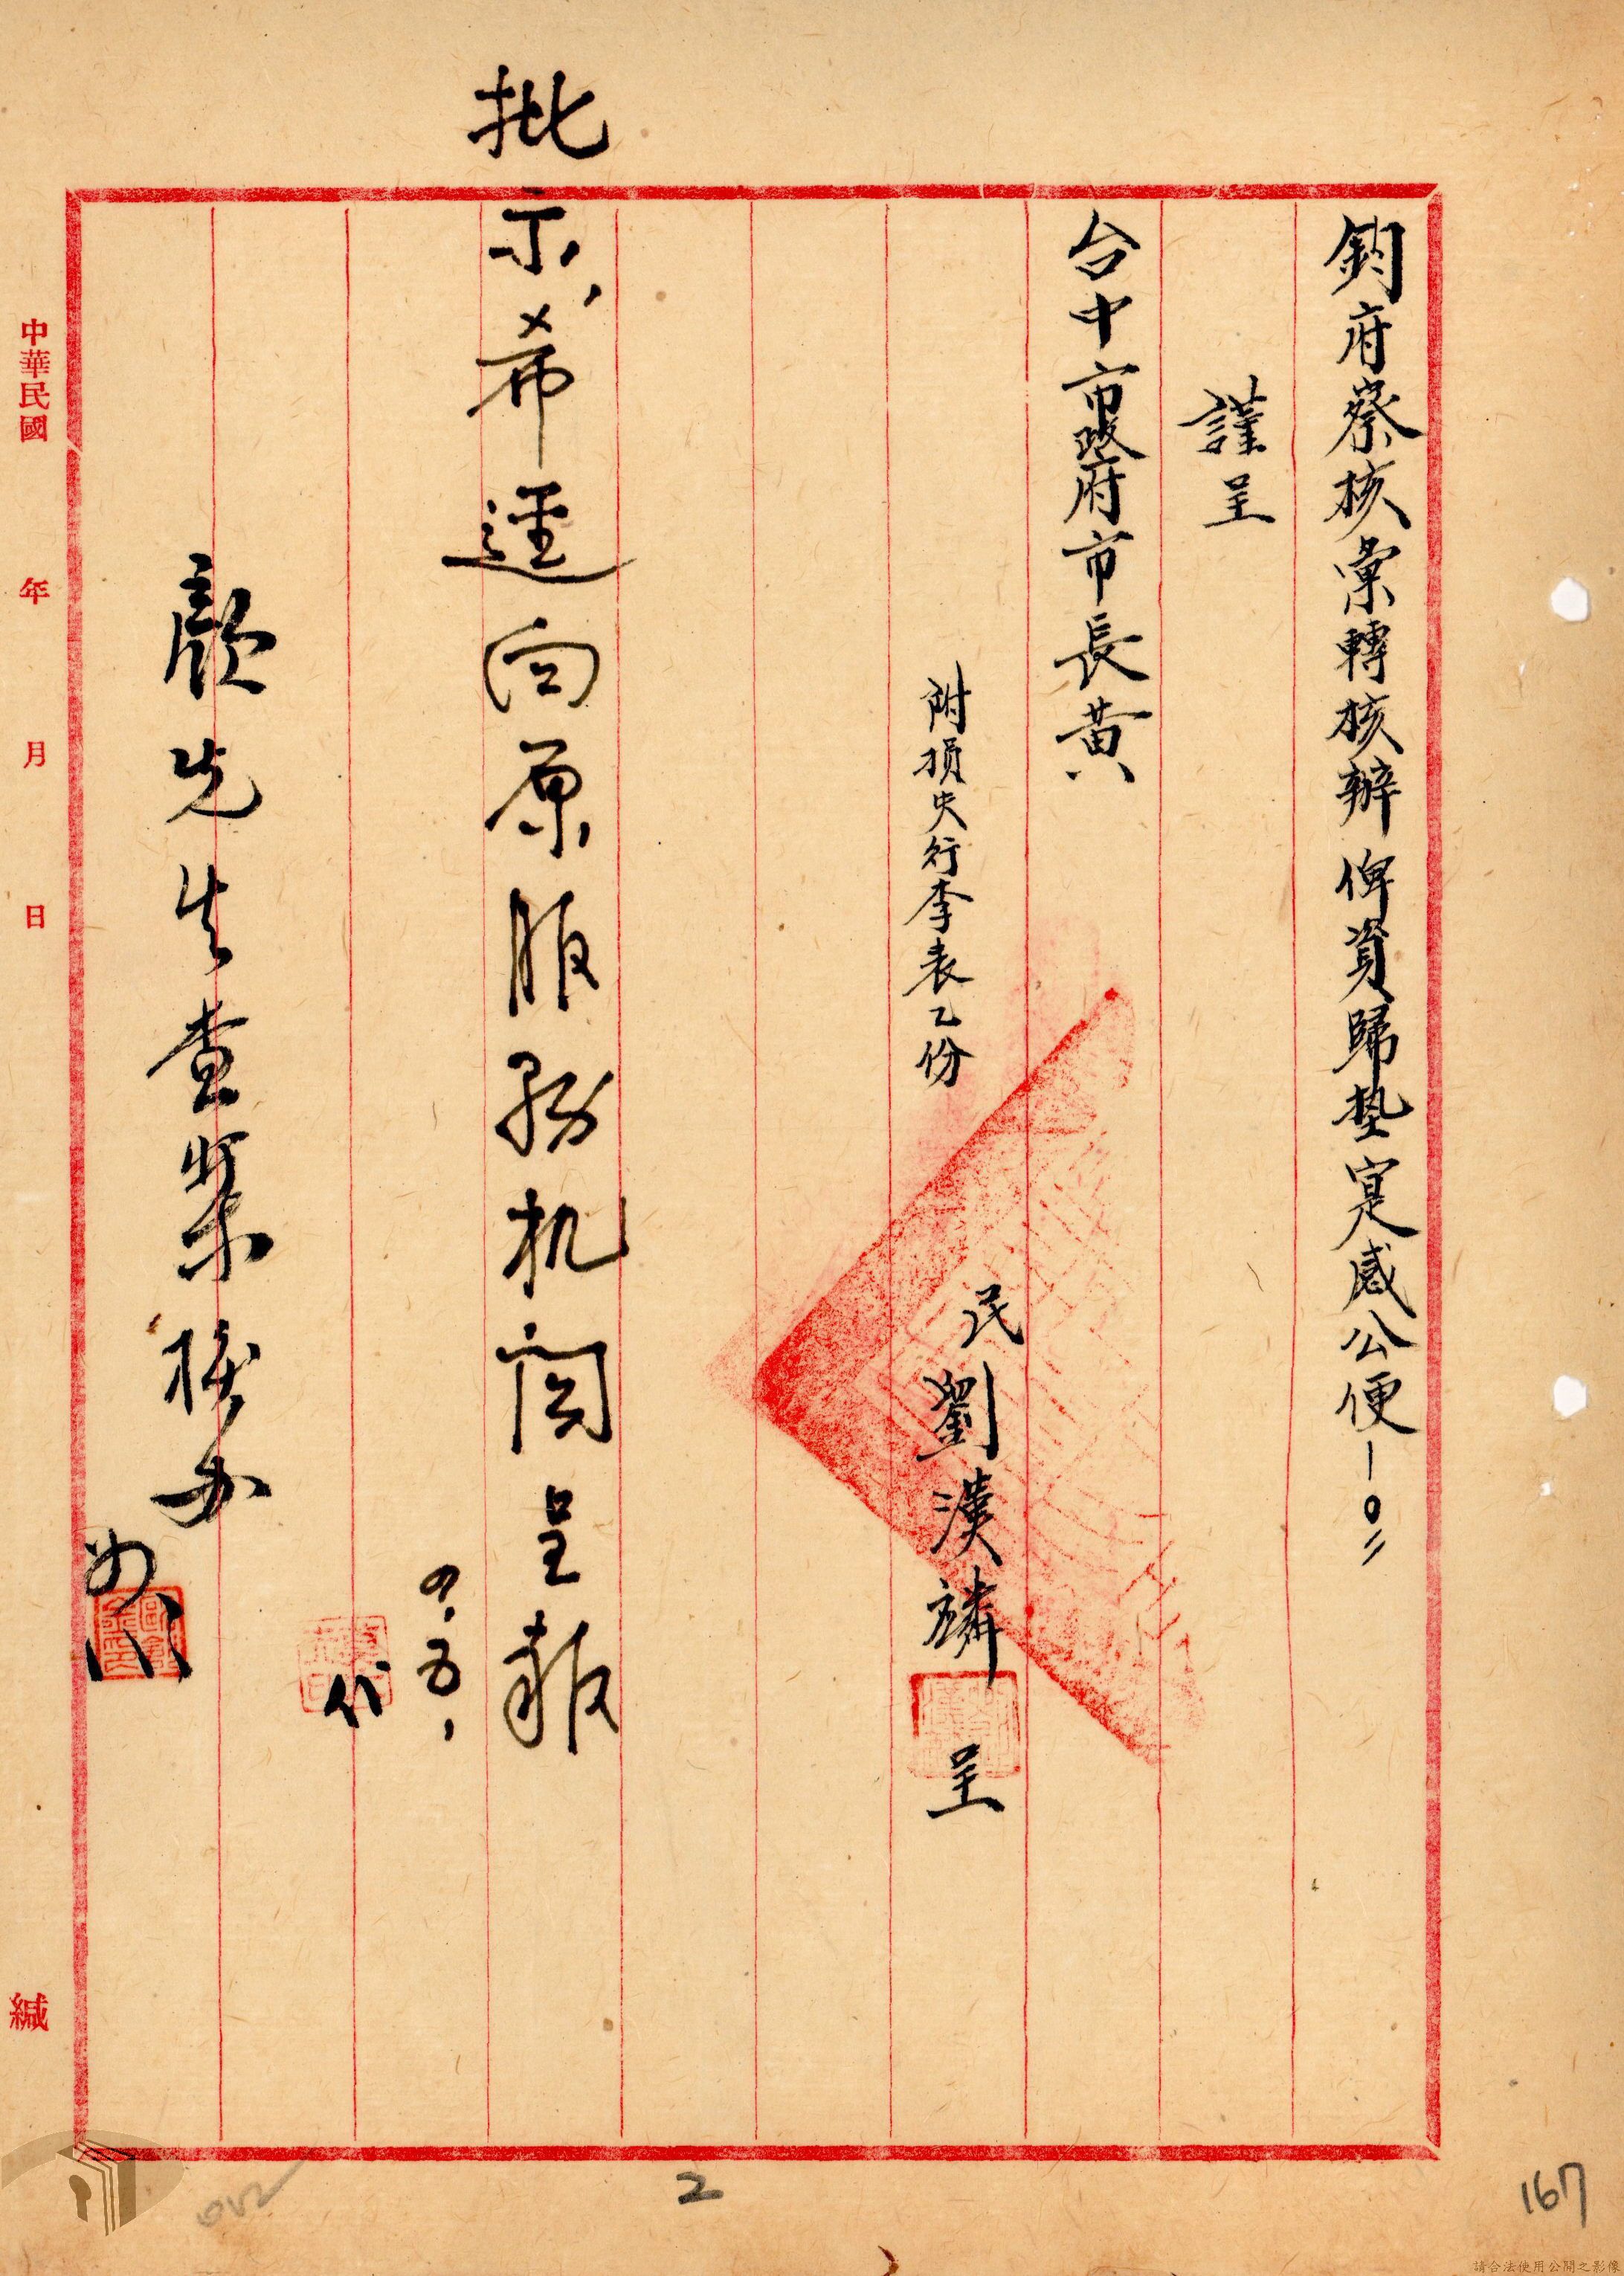 鈞府察核彙轉核辦俾資歸墊寔感公便－〇〃
謹呈
台中市政府市長黃
附損失行李表乙份
民劉漢麟呈
批示、希逕向原服務机関呈報
四.五、
代
顏先生查案核办
中華民國 年 月 日 緘
2
167
請合法使用公開之影像